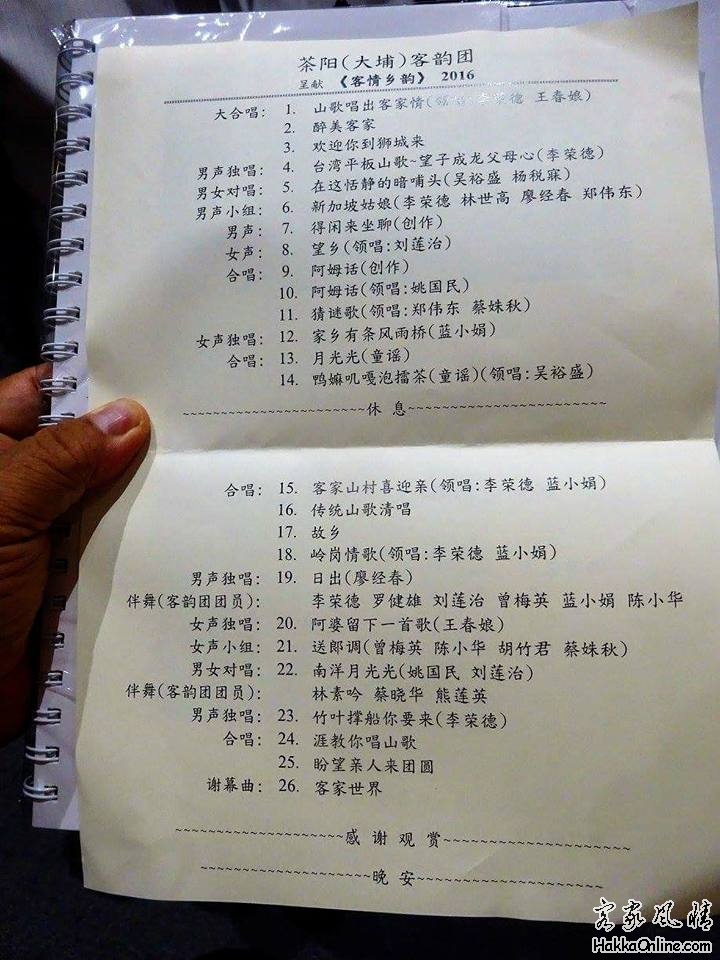 茶阳(大埔)客韵团
呈献 《客情乡韵》 2016
大合唱: 1. 山歌唱出客家情(领唱:李荣德 王春娘)
2. 醉美客家
3. 欢迎你到狮城来
男声独唱: 4. 台湾平板山歌~望子成龙父母心(李荣德)
男女对唱: 5. 在这恬静的暗哺头(吴裕盛 杨税寐)
男声小组: 6. 新加坡姑娘(李荣德 林世高 廖经春 郑伟东)
男声: 7. 得闲来坐聊(创作)
女声: 8. 望乡(领唱:刘莲治)
合唱: 9. 阿姆话(创作)
10. 阿姆话(领唱:姚国民)
11. 猜谜歌(领唱:郑伟东 蔡姝秋)
女声独唱: 12. 家乡有条风雨桥(蓝小娟)
合唱: 13. 月光光(童谣)
14. 鸭嫲叽嘎泡擂茶(童谣)(领唱:吴裕盛)
~~~~~~~~~~~~~~~~~~~~~~~休 息~~~~~~~~~~~~~~~~~~~~~~~~~
合唱: 15. 客家山村喜迎亲(领唱:李荣德 蓝小娟)
16. 传统山歌清唱
17. 故乡
18. 岭岗情歌(领唱:李荣德 蓝小娟)
男声独唱: 19. 日出(廖经春)
伴舞(客韵团团员): 李荣德 罗健雄 刘莲治 曾梅英 蓝小娟 陈小华
女声独唱: 20. 阿婆留下一首歌(王春娘)
女声小组: 21. 送郎调(曾梅英 陈小华 胡竹君 蔡姝秋)
男女对唱: 22. 南洋月光光(姚国民 刘莲治)
伴舞(客韵团团员): 林素吟 蔡晓华 熊莲英
男声独唱: 23. 竹叶撑船你要来(李荣德)
合唱: 24. 涯教你唱山歌
25. 盼望亲人来团圆
谢幕曲: 26. 客家世界
~~~~~~~~~~~~~~~~~~~~~感 谢 观 赏~~~~~~~~~~~~~~~~~~~~~~~~
~~~~~~~~~~~~~~~~~~~~~晚 安~~~~~~~~~~~~~~~~~~~~~~~~
客家风情
HakkaOnline.com